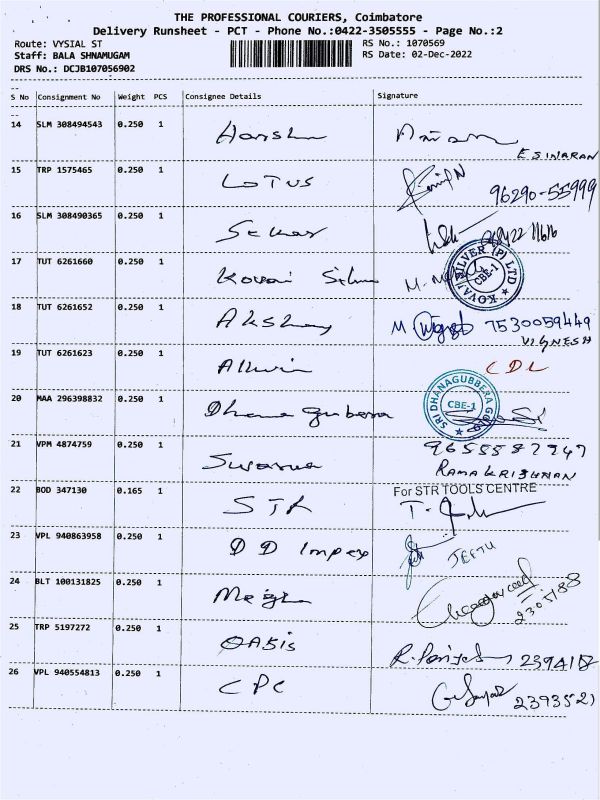 THE PROFESSIONAL COURIERS, Coimbatore
Delivery Runsheet - PCT - Phone No.:0422-3505555 - Page No.:2
Route: VYSIAL ST RS No.: 1070569
Staff: BALA SHNAMUGAM RS Date: 02-Dec-2022
DRS No.: DCJB107056902
S No Consignment No Weight PCS Consignee Details Signature
14 SLM 308494543 0.250 1 Harsh
ESINARAN
15 TRP 1575465 0.250 1 LOTUS 96290-55999
16 SLM 308490365 0.250 1 Sekar
17 TUT 6261660 0.250 1 Kovai Silver KOVAI SILVER (P) LTD CBE-1
18 TUT 6261652 0.250 1 Akshay M 7530059449
VIGNESH
19 TUT 6261623 0.250 1 Allwin CDL
20 MAA 296398832 0.250 1 Dhana gubera SRI DHANAGUBBERA GOLD CBE-1
21 VPM 4874759 0.250 1 Swarna 9655587747
RAMAKRISHNAN
22 BOD 347130 0.165 1 STR For STR TOOLS CENTRE
23 VPL 940863958 0.250 1 DD Impex JEETU
24 BLT 100131825 0.250 1 2305188
25 TRP 5197272 0.250 1 OASIS
26 VPL 940554813 0.250 1 CPC 2393521